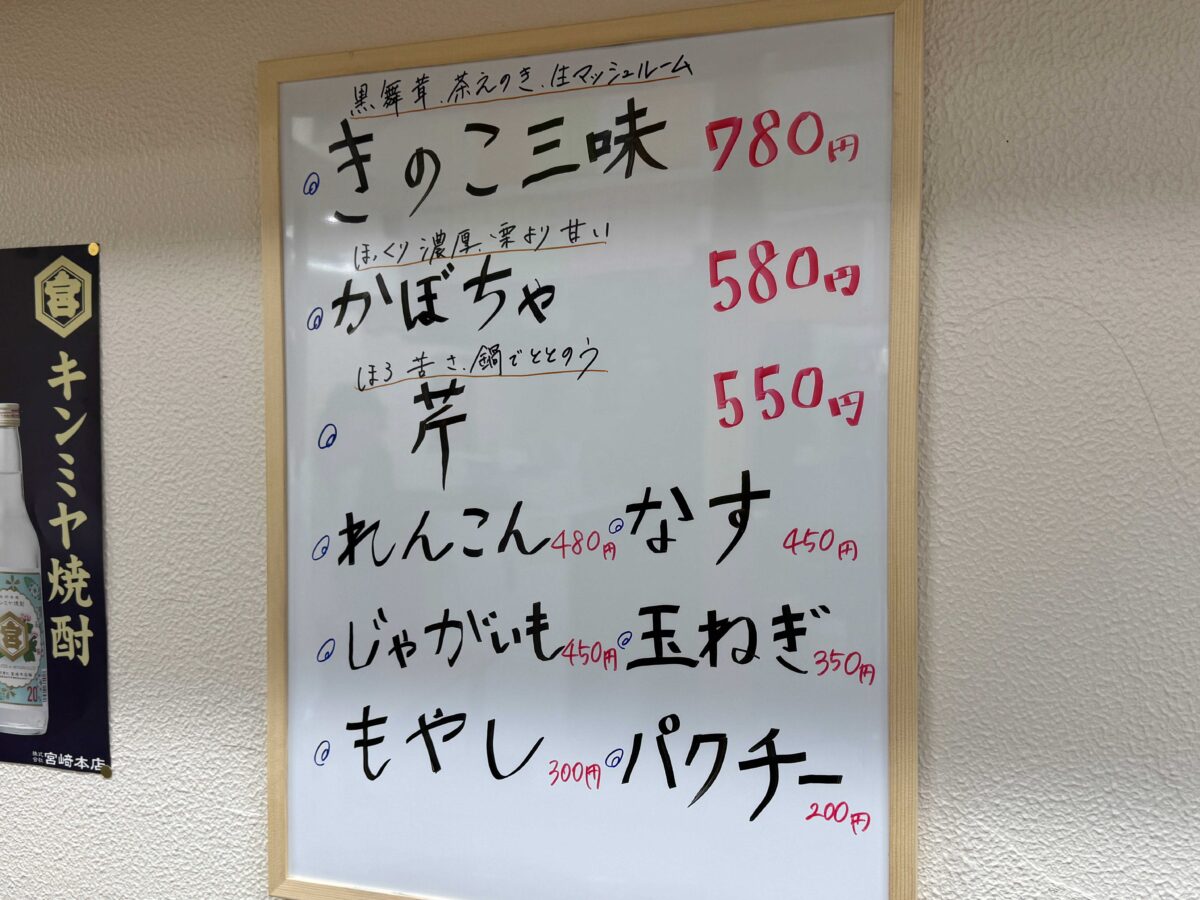 黒舞茸、茶えのき、生マッシュルーム
きのこ三味 780円
ほっくり濃厚、栗より甘い
かぼちゃ 580円
ほろ苦さ、鍋でととのう
芹 550円
れんこん 480円 なす 450円
じゃがいも 450円 玉ねぎ 350円
もやし 300円 パクチー 200円
宮
キンミヤ焼酎
宮
20
株式会社 宮﨑本店